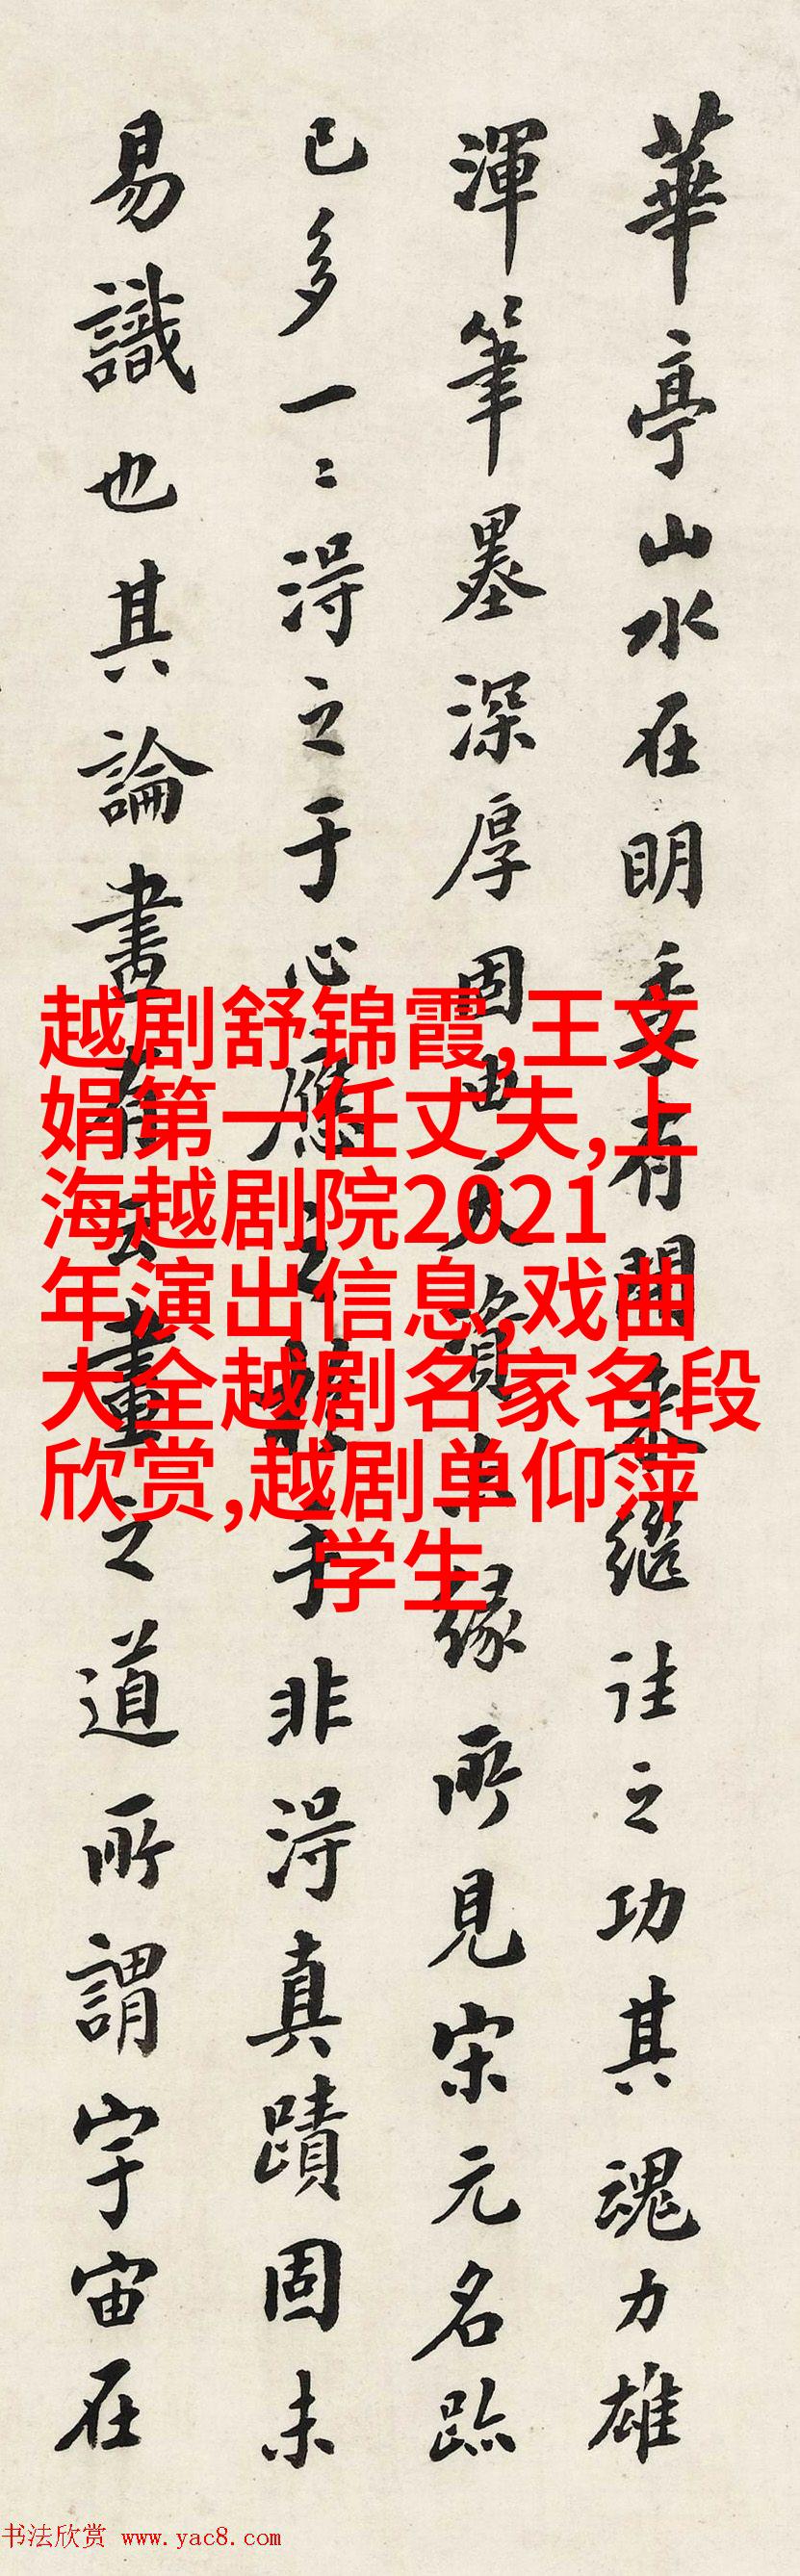 華亭山水在明季有開來繼往之功其魂力雄
渾筆墨深厚固由天資亦緣所見宋元名跡
已多一二得之于心應之于手非得真蹟固未
易識也其論畫有云畫之道所謂宇宙在
越剧舒锦霞,王文
娟第一任丈夫,上
海越剧院2021
年演出信息,戏曲
大全越剧名家名段
欣赏,越剧单仰萍
学生
书法欣赏 www.yac8.com